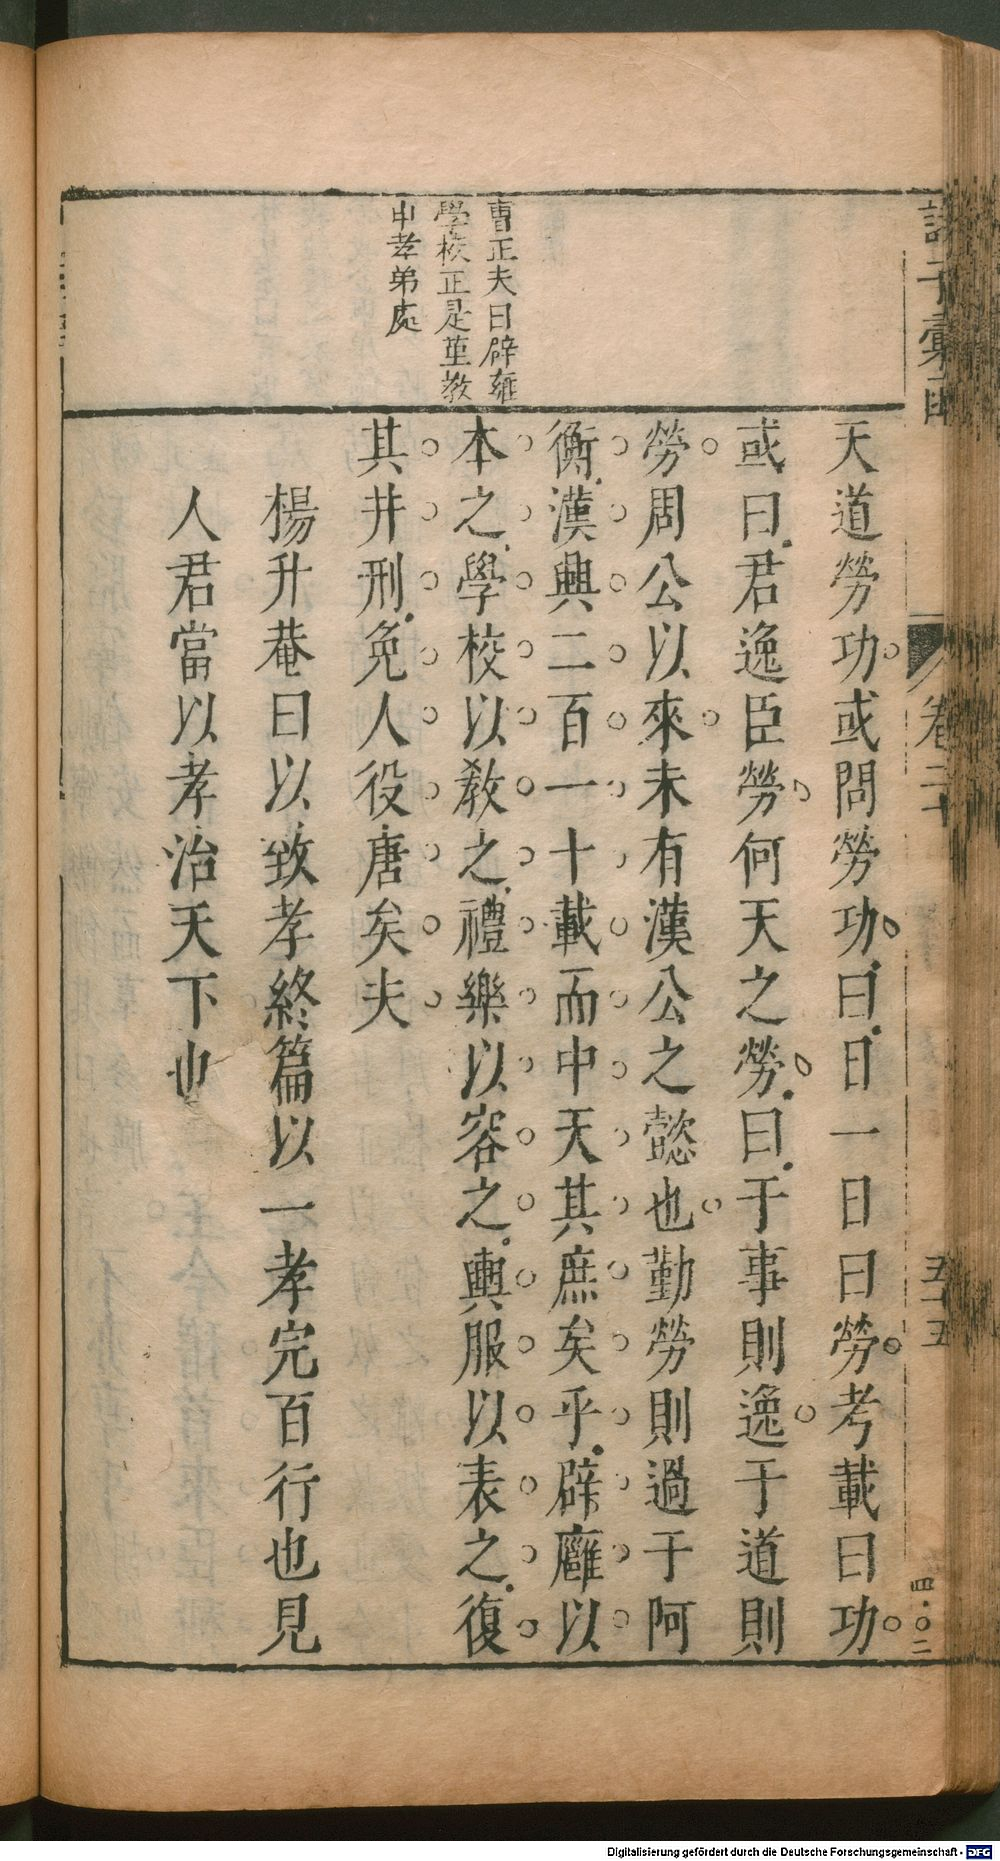 諸子彙函
卷二十
五十五
四〇二
曹正夫曰辟雍
學校正是堇教
中孝弟處
天道勞功或問勞功曰日一日曰勞考載曰功
或曰君逸臣勞何天之勞曰于事則逸于道則
勞周公以來未有漢公之懿也勤勞則過于阿
衡漢興二百一十載而中天其庶矣乎辟廱以
本之學校以教之禮樂以容之輿服以表之復
其井刑免人役唐矣夫
楊升菴曰以致孝終篇以一孝完百行也見
人君當以孝治天下也
Digitalisierung gefördert durch die Deutsche Forschungsgemeinschaft - DFG